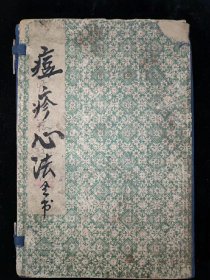 痘疹心法全书